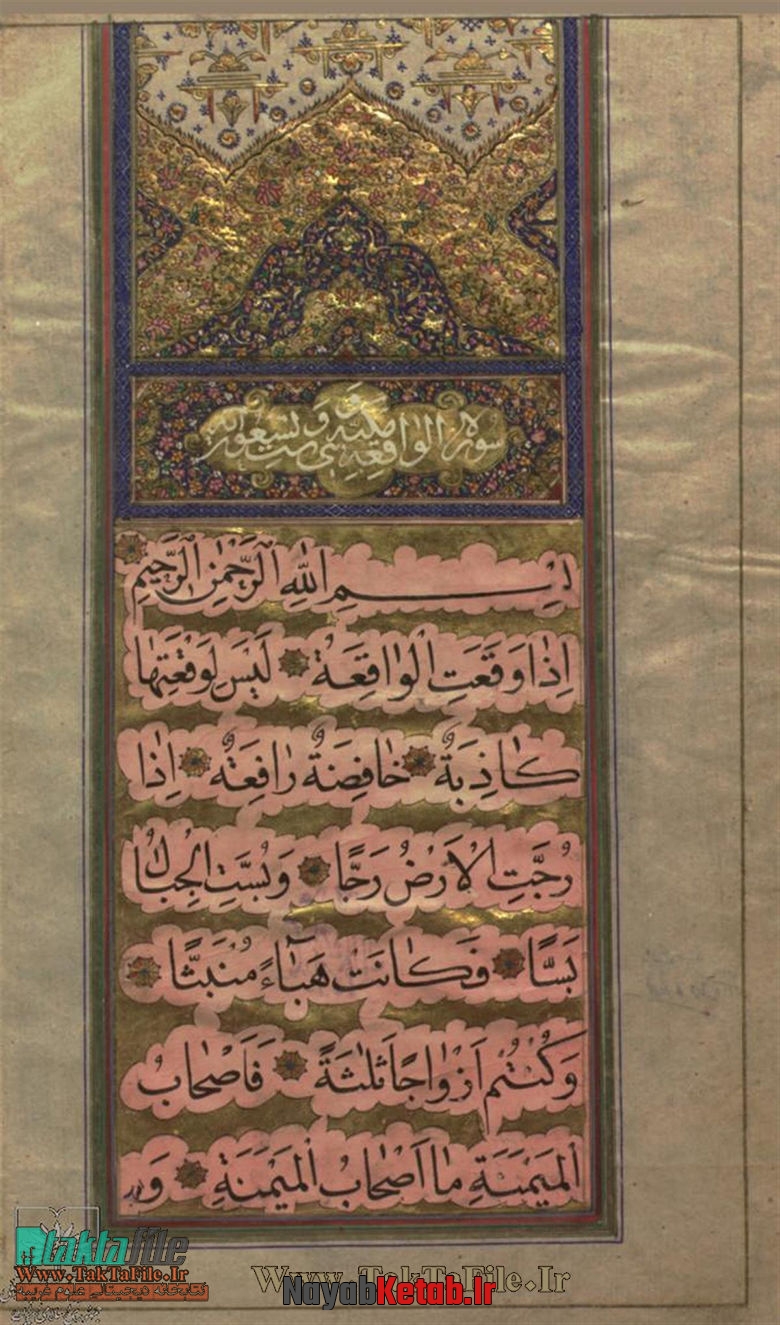 سورة الواقعة مكية وهي ست وتسعون آية
بِسْمِ اللّٰهِ الرَّحْمٰنِ الرَّحِيمِ
اِذَا وَقَعَتِ الْوٰاقِعَةُ لَيْسَ لِوَقْعَتِهٰا
كٰاذِبَةٌ خٰافِضَةٌ رٰافِعَةٌ اِذٰا
رُجَّتِ الْاَرْضُ رَجًّا وَبُسَّتِ الْجِبٰالُ
بَسًّا فَكٰانَتْ هَبٰٓاءً مُنْبَثًّا
وَكُنْتُمْ اَزْوٰاجًا ثَلٰثَةً فَاَصْحٰابُ
الْمَيْمَنَةِ مٰا اَصْحٰابُ الْمَيْمَنَةِ وَ
taktafile
Www.TakTaFile.Ir
کتابخانه دیجیتالی علوم غریبه
Www.TakTaFile.Ir
NayabKetab.Ir